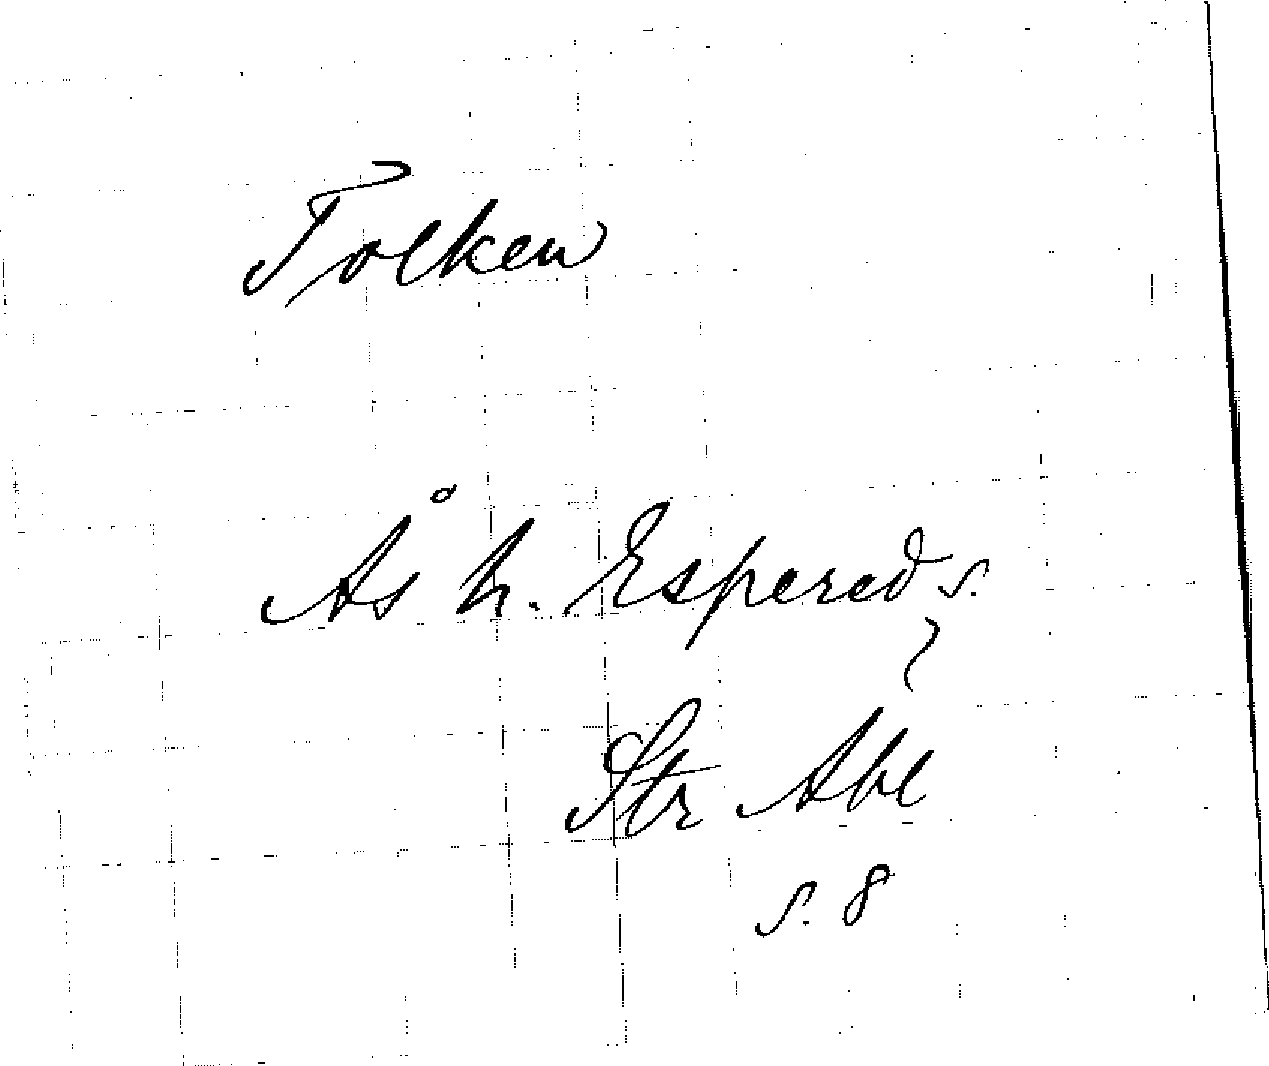 Tolken
Ås h. Espered s.
Str Abl
s. 8